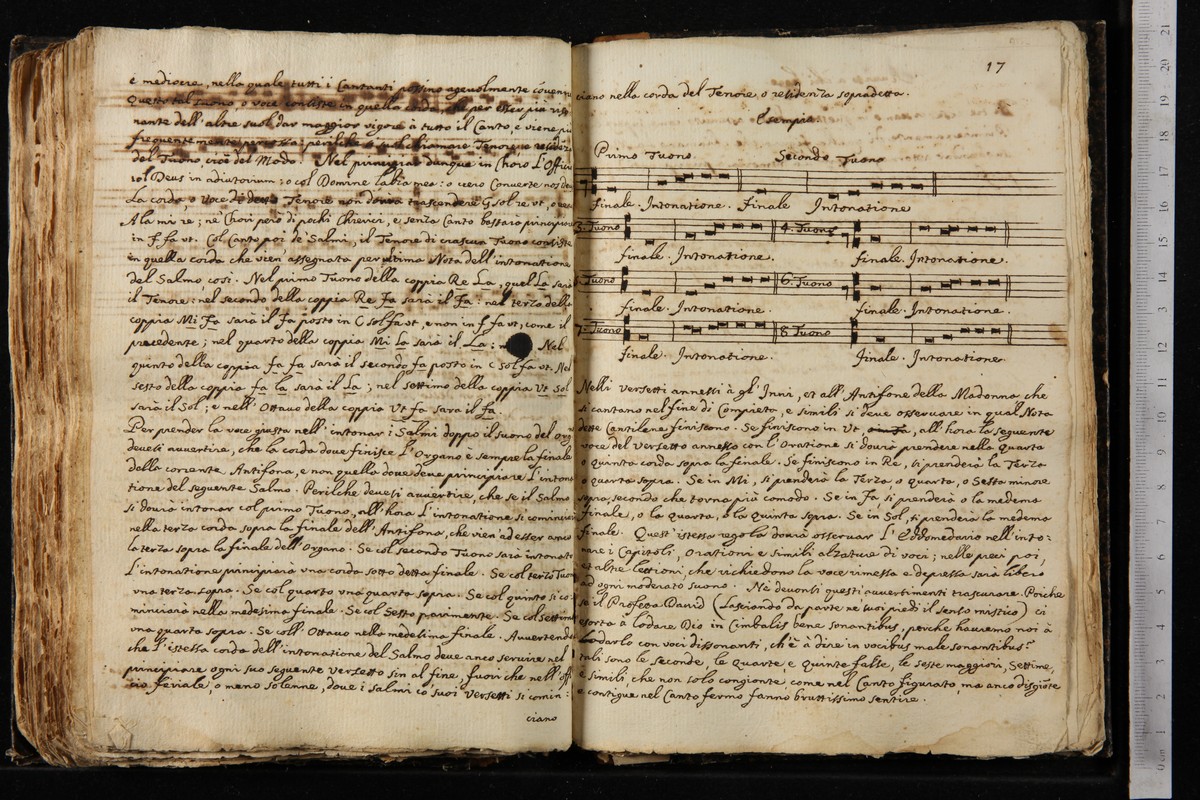 e mediocre, nella quale tutti i Cantanti possino agevolmente
Questo tal Tuono, o voce consiste in quella corda, che per esser più
nante dell'altre suol dar maggior vigore à tutto il Canto, e viene più
frequentemente perche si suol chiamare Tenore, o
del Tuono cioè del Modo. Nel principiar dunque in Choro L'Officio
col Deus in adiutorium; o col Domine labia mea: o vero Converte nos
La corda o voce Tenore non dourà trascendere G sol re ut, o
A la mi re; ne' Chori però di pochi Chierici, e senza Canto
in F fa ut. Col Canto poi de' Salmi, il Tenore di ciascun Tuono consiste
in quella corda che vien assegnata per ultima Nota dell'intonatione
del Salmo così. Nel primo Tuono della coppia Re La, quel La sarà
il Tenore: nel secondo della coppia Re Fa sarà il Fa: nel terzo della
coppia Mi Fa sarà il fa posto in C sol fa ut, e non in f fa ut, come il
precedente; nel quarto della coppia Mi La sarà il La: Nel
quinto della coppia fa fa sarà il secondo fa posto in C sol fa ut. Nel
sesto della coppia fa la sarà il La; nel settimo della coppia Ut Sol
sarà il Sol; e nell'Ottavo della coppia Ut fa sarà il fa.
Per prender la voce giusta nell'intonar i Salmi doppo il suono del
devesi auuertire, che la corda doue finisce L'Organo è sempre la finale
della corrente Antifona, e non quella doue deve principiare L'intona
tione del seguente Salmo. Perilche devesi auuertire, che se il Salmo
si dourà intonar col primo Tuono, all'hora L'intonatione si comincierà
nella terza corda sopra la finale dell'Antifona, che vien ad esser anco
la terza sopra la finale dell'Organo. Se col secondo Tuono sarà intonato
L'intonatione principiarà una corda sotto detta finale. Se col terzo Tuono
una terza sopra. Se col quarto una quarta sopra. Se col quinto si co
minciarà nella medesima finale. Se col Sesto parimente. Se col settimo
una quarta sopra. Se coll'Ottavo nella medesima finale. Auuertendo
che l'istessa corda dell'intonatione del Salmo deve anco servire nel
principiare ogni suo seguente versetto sin al fine, fuori che nell'offi
cio feriale, o meno solenne, doue i salmi co suoi versetti si comin:
ciano
17
ciano nella corda del Tenore o residenza sopradetta.
Esempio.
Primo Tuono Secondo Tuono
finale. Intonatione. finale Intonatione
3. Tuono 4. Tuono
finale. Intonatione. finale. Intonatione.
Tuono 6. Tuono
finale. Intonatione. finale. Intonatione.
7. Tuono 8 Tuono
finale. Intonatione. finale. Intonatione.
Nelli versetti annessi à gl'Inni, et all'Antifone della Madonna che
si cantano nel fine di Compieta, e simili si deve osservare in qual Nota
dette Cantilene finiscono. Se finiscono in Ut, all'hora la seguente
voce del versetto annesso con l'Oratione si dourà prendere nella quarta
o quinta corda sopra la finale. Se finiscono in Re, si prenderà la Terza
o quarta sopra. Se in Mi, si prenderà la Terza, o quarta, o Sesta minore
sopra, secondo che torna più comodo. Se in Fa si prenderà o la medema
finale, o la quarta, o la quinta sopra. Se in Sol, si prenderà la medema
finale. Quest'istessa regola dourà osservar L'Eddomedario nell'into:
nare i Capitoli, Orationi e simili alzature di voci; nelle preci poi,
et altre lettioni, che richiedono la voce rimessa e depressa sarà libero
ad ogni moderato suono. Nè devonsi questi auuertimenti trascurare. Poiche
se il Profeta David (Lasciando da parte ne suoi piedi il senso mistico) ci
esorta à lodare Dio in Cimbalis bene sonantibus, perche hauremo noi à
Lodarlo con voci dissonanti, ch'è à dire in vocibus male sonantibus?
tali sono le seconde, le quarte e quinte false, le seste maggiori, settime,
e simili, che non solo congionte come nel Canto figurato, ma anco disgionte
e contigue nel Canto fermo fanno bruttissimo sentire.